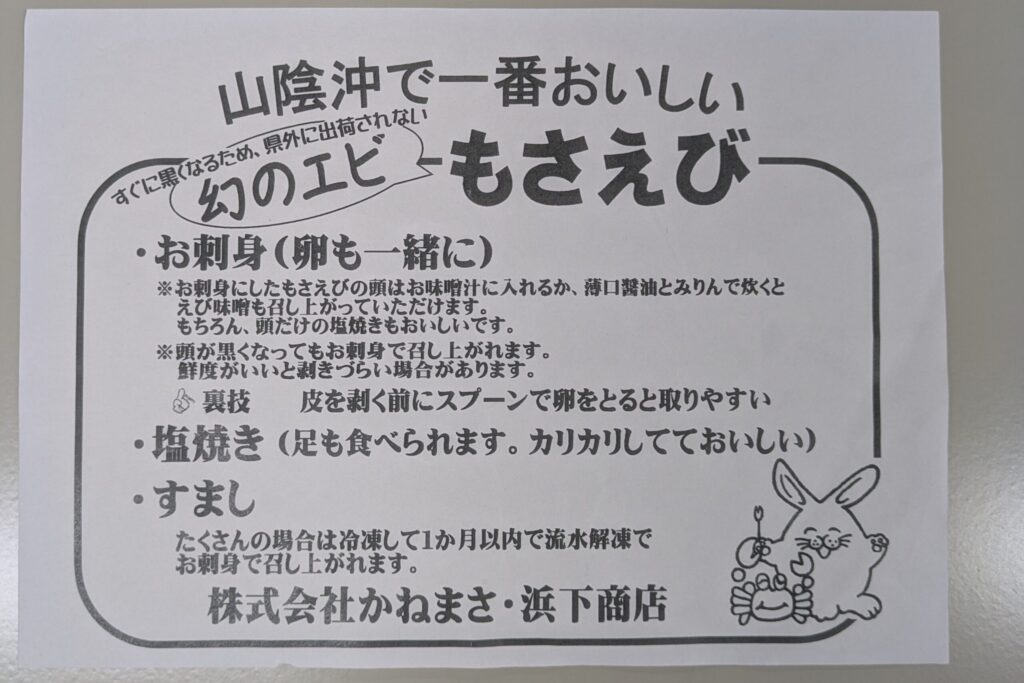 山陰沖で一番おいしい
すぐに黒くなるため、県外に出荷されない
幻のエビ
もさえび
・お刺身（卵も一緒に）
※お刺身にしたもさえびの頭はお味噌汁に入れるか、薄口醤油とみりんで炊くと
えび味噌も召し上がっていただけます。
もちろん、頭だけの塩焼きもおいしいです。
※頭が黒くなってもお刺身で召し上がれます。
鮮度がいいと剥きづらい場合があります。
裏技　皮を剥く前にスプーンで卵をとると取りやすい
・塩焼き（足も食べられます。カリカリしてておいしい）
・すまし
たくさんの場合は冷凍して1か月以内で流水解凍で
お刺身で召し上がれます。
株式会社かねまさ・浜下商店